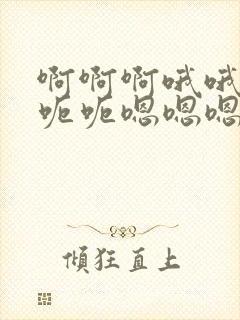 啊啊啊哦哦
呃呃嗯嗯嗯
傾狂直上